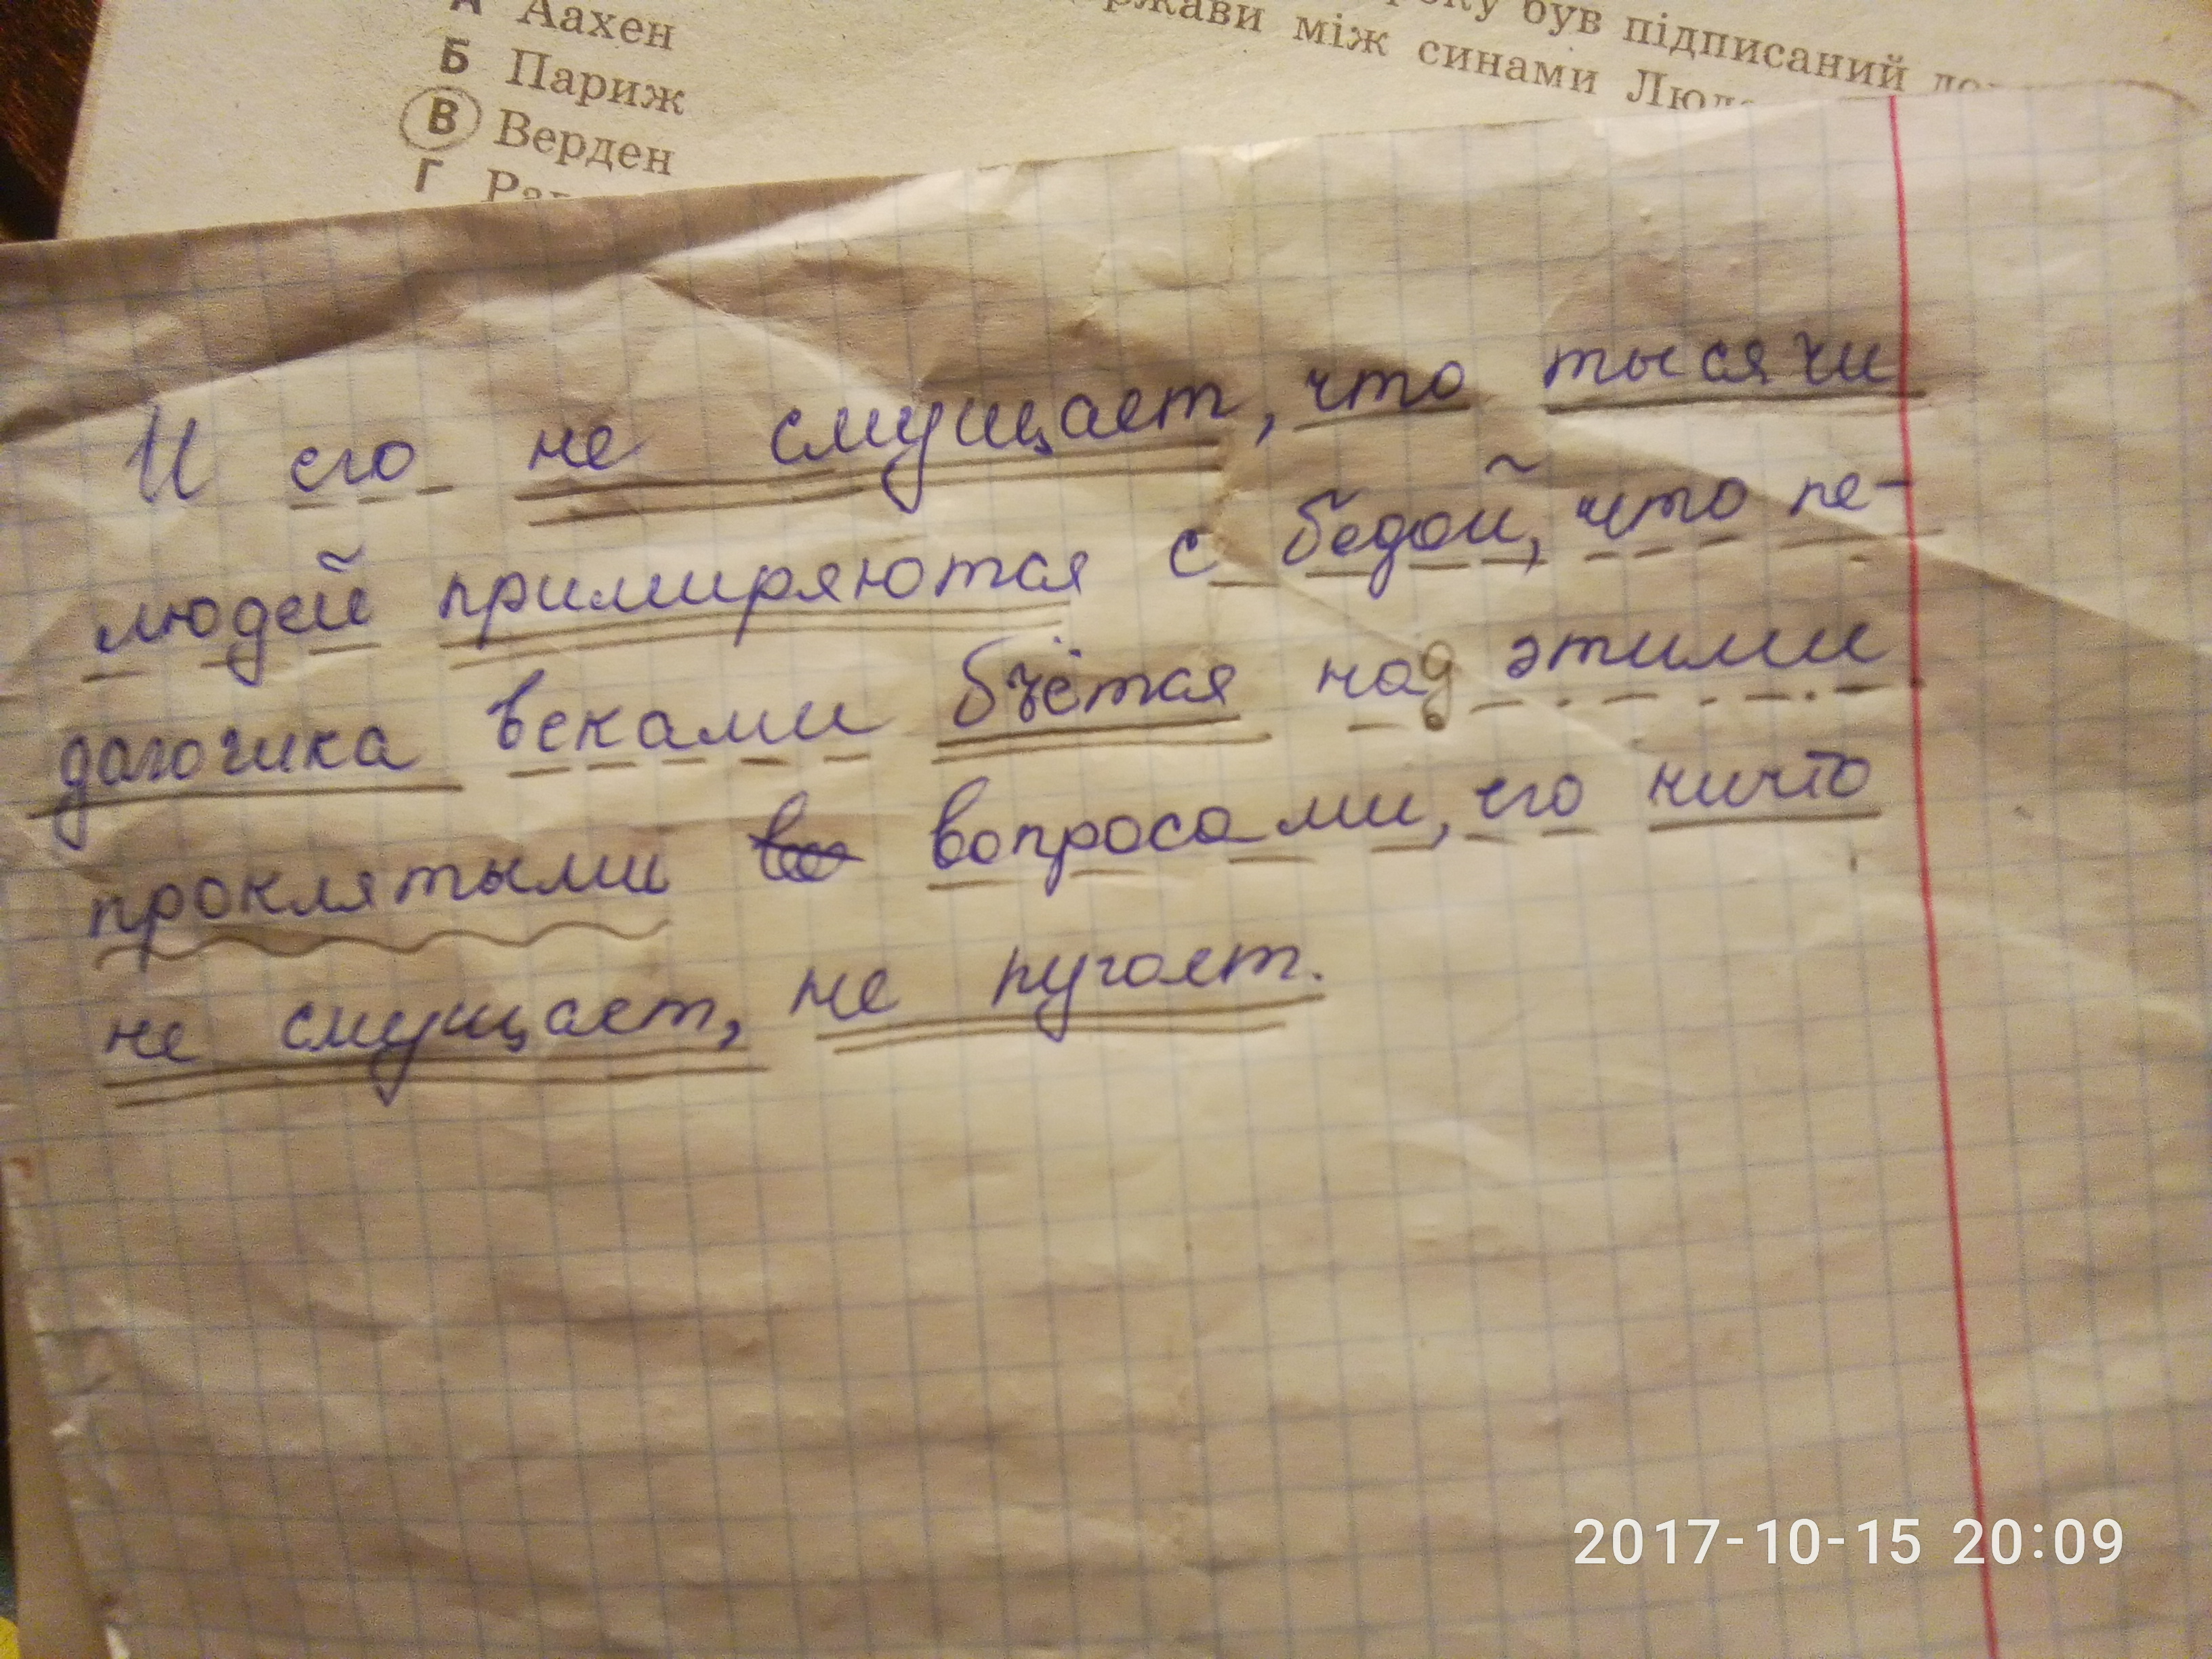 А Аахен
Б Париж
В Верден
Г
року був підписаний
між синами
И его не смущает, что тысячи
людей примиряются с бедой, что пе-
дагогика веками бъётся над этими
проклятыми вопросами, его ничто
не смущает, не пугает.
2017-10-15 20:09